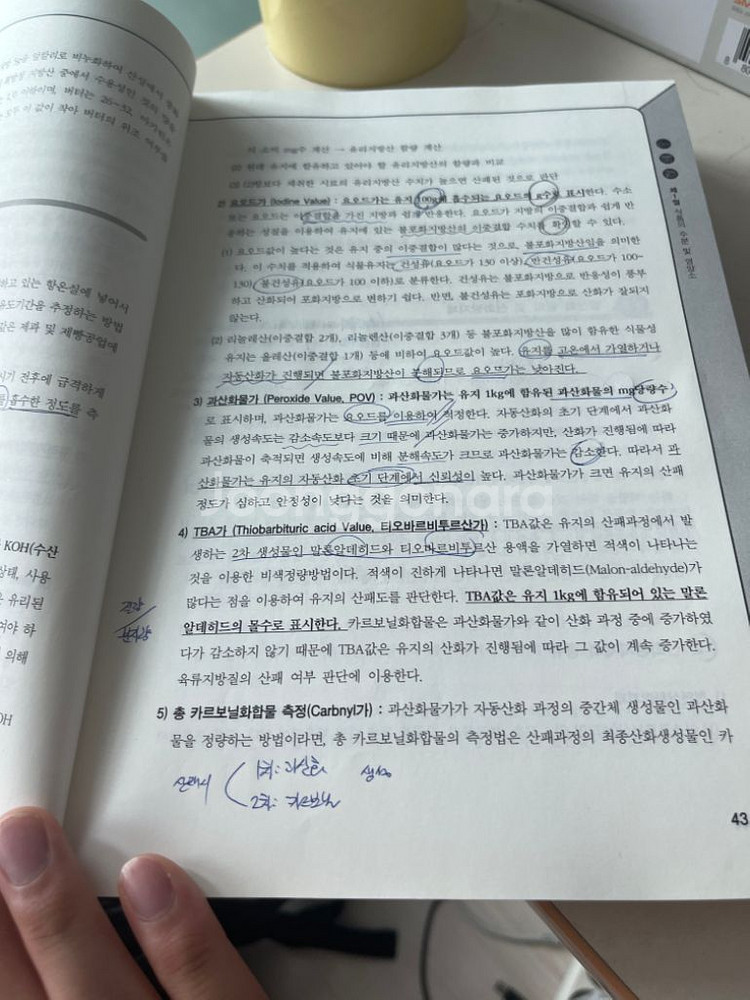 의 소비 mg수 계산 → 유리지방산 함량 계산
(2) 원래 유지에 함유하고 있어야 할 유리지방산의 함량과 비교
(3) (2)항보다 채취한 시료의 유리지방산 수치가 높으면 산패된 것으로 판단
2) 요오드가 (Iodine Value) : 요오드가는 유지 100g에 흡수되는 요오드의 g수로 표시한다. 수소
또는 요오드는 이중결합을 가진 지방과 쉽게 반응한다. 요오드가 지방의 이중결합과 쉽게 반
응하는 성질을 이용하여 유지에 있는 불포화지방산의 이중결합 수치를 확인할 수 있다.
(1) 요오드값이 높다는 것은 유지 중의 이중결합이 많다는 것으로, 불포화지방산임을 의미한
다. 이 수치를 적용하여 식물유지는 건성유(요오드가 130 이상), 반건성유(요오드가 100~
130), 불건성유(요오드가 100 이하)로 분류한다. 건성유는 불포화지방으로 반응성이 풍부
하고 산화되어 포화지방으로 변하기 쉽다. 반면, 불건성유는 포화지방으로 산화가 잘되지
않는다.
(2) 리놀레산(이중결합 2개), 리놀렌산(이중결합 3개) 등 불포화지방산을 많이 함유한 식물성
유지는 올레산(이중결합 1개) 등에 비하여 요오드값이 높다. 유지를 고온에서 가열하거나
자동산화가 진행되면 불포화지방산이 분해되므로 요오드가는 낮아진다.
3) 과산화물가 (Peroxide Value, POV) : 과산화물가는 유지 1kg에 함유된 과산화물의 mg당량수
로 표시하며, 과산화물가는 요오드를 이용하여 적정한다. 자동산화의 초기 단계에서 과산화
물의 생성속도는 감소속도보다 크기 때문에 과산화물가는 증가하지만, 산화가 진행됨에 따라
과산화물이 축적되면 생성속도에 비해 분해속도가 크므로 과산화물가는 감소한다. 따라서 과
산화물가는 유지의 자동산화 초기 단계에서 신뢰성이 높다. 과산화물가가 크면 유지의 산패
정도가 심하고 안정성이 낮다는 것을 의미한다.
4) TBA가 (Thiobarbituric acid Value, 티오바르비투르산가) : TBA값은 유지의 산패과정에서 발
생하는 2차 생성물인 말론알데히드와 티오바르비투르산 용액을 가열하면 적색이 나타나는
것을 이용한 비색정량방법이다. 적색이 진하게 나타나면 말론알데히드(Malon-aldehyde)가
많다는 점을 이용하여 유지의 산패도를 판단한다. TBA값은 유지 1kg에 함유되어 있는 말론
알데히드의 몰수로 표시한다. 카르보닐화합물은 과산화물가와 같이 산화 과정 중에 증가하였
다가 감소하지 않기 때문에 TBA값은 유지의 산화가 진행됨에 따라 그 값이 계속 증가한다.
육류지방질의 산패 여부 판단에 이용한다.
5) 총 카르보닐화합물 측정(Carbnyl가) : 과산화물가가 자동산화 과정의 중간체 생성물인 과산화
물을 정량하는 방법이라면, 총 카르보닐화합물의 측정법은 산패과정의 최종산화생성물인 카
43
제1절 식품의 수분 및 영양소
하고 있는 항온실에 넣어서
유도기간을 추정하는 방법
같은 제과 및 제빵공업에
시기 전후에 급격하게
흡수한 정도를 측
KOH(수산
상태, 사용
유리된
여야 하
의해
OH